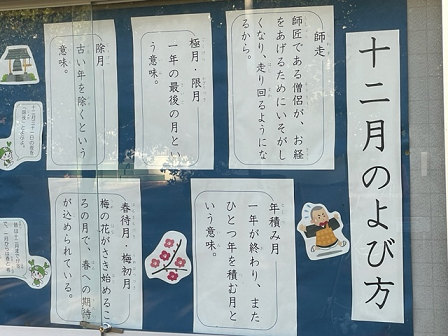 十二月のよび方
師走
師匠である僧侶が、お経
をあげるためにいそがし
くなり、走り回るようにな
るから。
極月・限月
一年の最後の月とい
う意味。
除月
古い年を除くという
意味。
年積み月
一年が終わり、また
ひとつ年を積む月と
いう意味。
春待月・梅初月
梅の花がさき始めるこ
ろの月で、春への期待
が込められている。